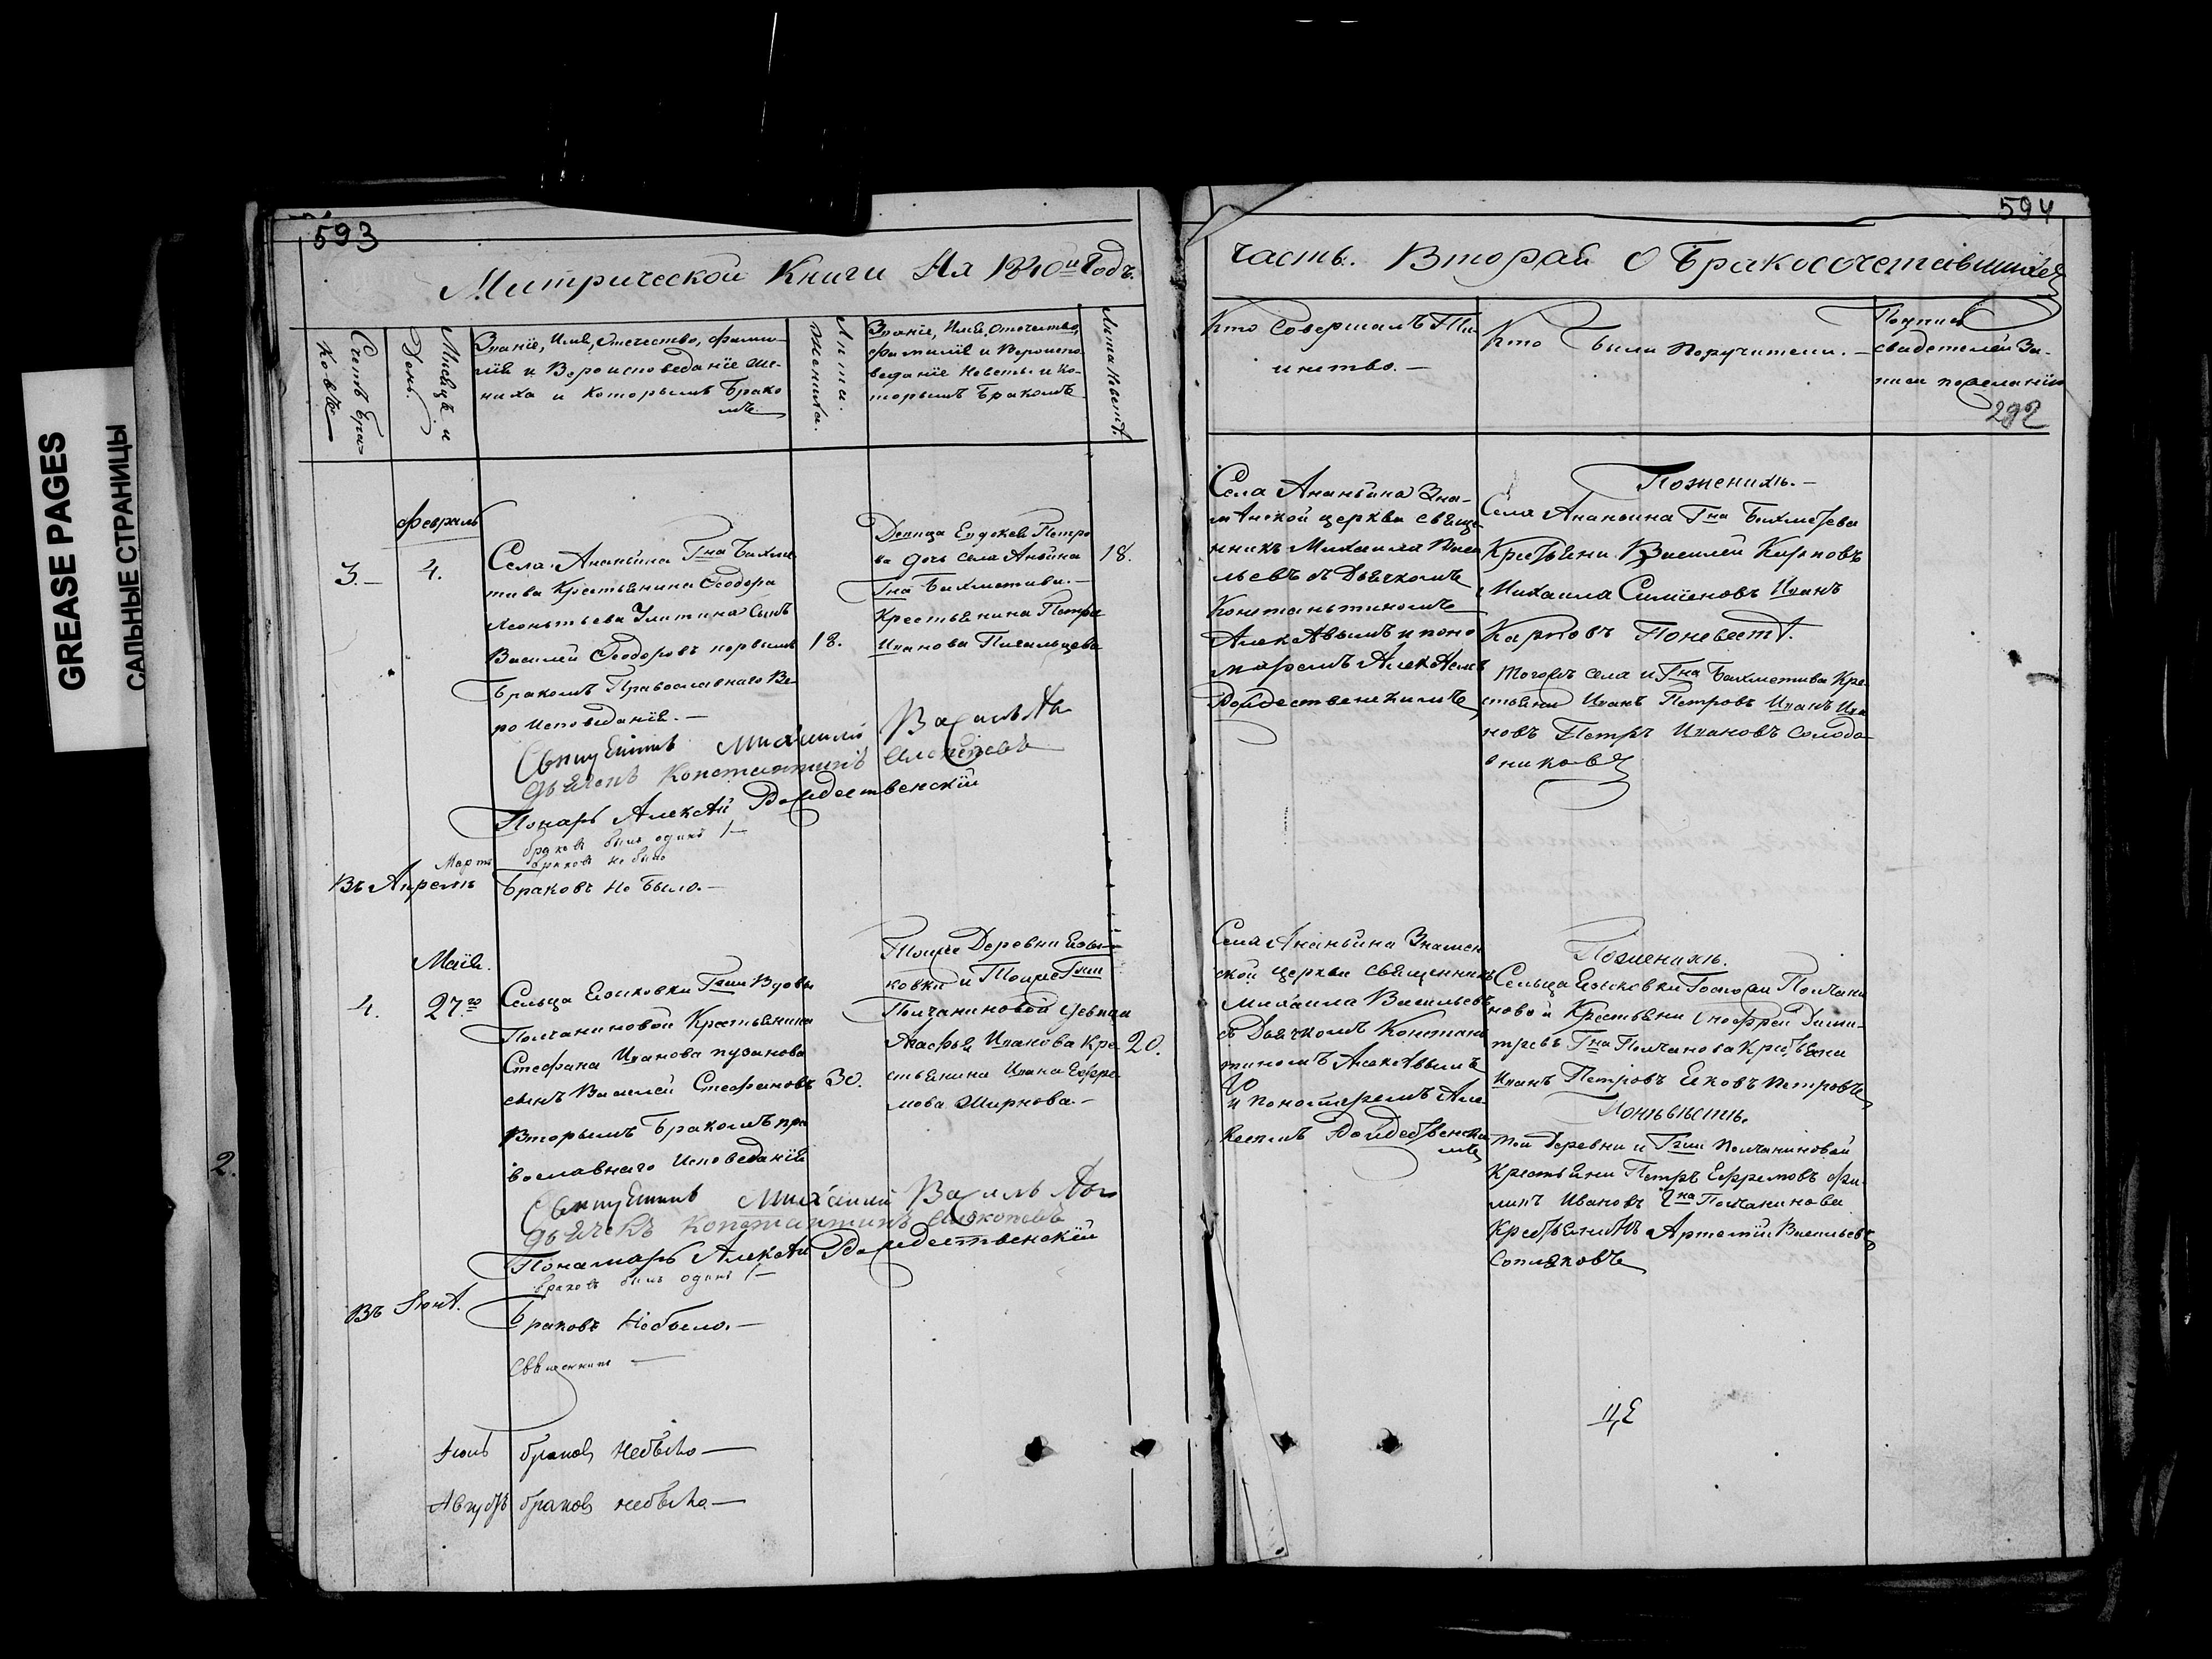 GREASE PAGES
САЛЬНЫЕ СТРАНИЦЫ
2.
593
Метрической Книги На 1840й Годъ
Счетъ Бра-
ковъ
Месяцъ и
День.
Званіе, Имя, Отечество, фами-
лія и Вероисповеданіе же-
ниха и Которымъ Брако
мъ.
Лета
жениха.
Званіе, Имя, Отечество,
фамилія и Вероиспо-
веданіе Невесты и Ко-
торымъ Бракомъ
Лета Невесты.
февраль
3.
4.
Села Ананьина Гна Бахме-
тива Крестьянина Феодора
Леонтьева Улитина Сынъ
Василей Феодоровъ первымъ
Бракомъ Православнаго Ве-
ро Исповеданія.
18.
Девица Евдокея Петро
ва дочь села Аньина
Гна Бахметива.
Крестьянина Петра
Иванова
18.
Священникъ Михаилъ Васильевъ
дьячекъ Константинъ Алексеевъ
Понарь Алексѣй Рождественскій
браков былъ одинъ 1
Мартъ браковъ не было
Въ Апрелѣ Браковъ Не Было.
Маія.
4.
27го
Сельца Гжи Вдовы
Полчаниновой Крестьянина
Стефана Иванова пузанова
сынъ Василей Стефановъ
Вторымъ Бракомъ пра
вославнаго Исповеданія
30.
Тойже Деревни
ковки и Тойже Гжи
Полчаниновой девица
Агафья Иванова Кре
стьянина Ивана Ефре
мова Ширнова.
20.
Священникъ Михаилъ Васильевъ
дьячекъ Константинъ Алексеевъ
Понамарь Алексѣй Рождественскій
браковъ былъ одинъ 1
Въ Іюнѣ.
Браковъ Небыло.
Священникъ
Іюль браковъ Небыло
Августъ браковъ небыло
594
часть. Вторая О Бракосочетавшихся
Кто Совершалъ Таи-
нство.
Кто были Поручители.
свидетелей За-
писи
292
Села Ананьина Зна-
менской церкви свяще
нникъ Михаила Васи
льевъ съ Дьячкомъ
Константиномъ
Алексѣвымъ и поно
маремъ Алексѣемъ
Рождественскимъ
Поженихѣ.
Села Ананьина Гна Бахметева
Крестьяни Василей Карповъ
Михаила Симіеновъ Иванъ
Карповъ Поневестѣ.
тогожъ села и Гна Бахметива Кре-
стьяни Иванъ Петровъ Иванъ Ива
новъ Петръ Ивановъ Солодо
вниковъ
Села Ананьина Знамен
ской церкви священникъ
Михаила Васильевъ
съ Дьячкомъ Констан
тиномъ Алексѣвымъ
и Пономаремъ Але
ксеемъ Рождественски
мъ
Поженихѣ.
Сельца Госпожи Полчани
новой Крестьяни Онофрей Дими-
тревъ Гна Полчанова Крестьяни
Иванъ Петровъ Яковъ Петровъ
Поневестѣ.
той Деревни и Гжи Полчаниновой
Крестьяни Петръ Ефремовъ Фи
липъ Ивановъ Гна Полчанинова
Крестьянинъ Артемій Васильевъ